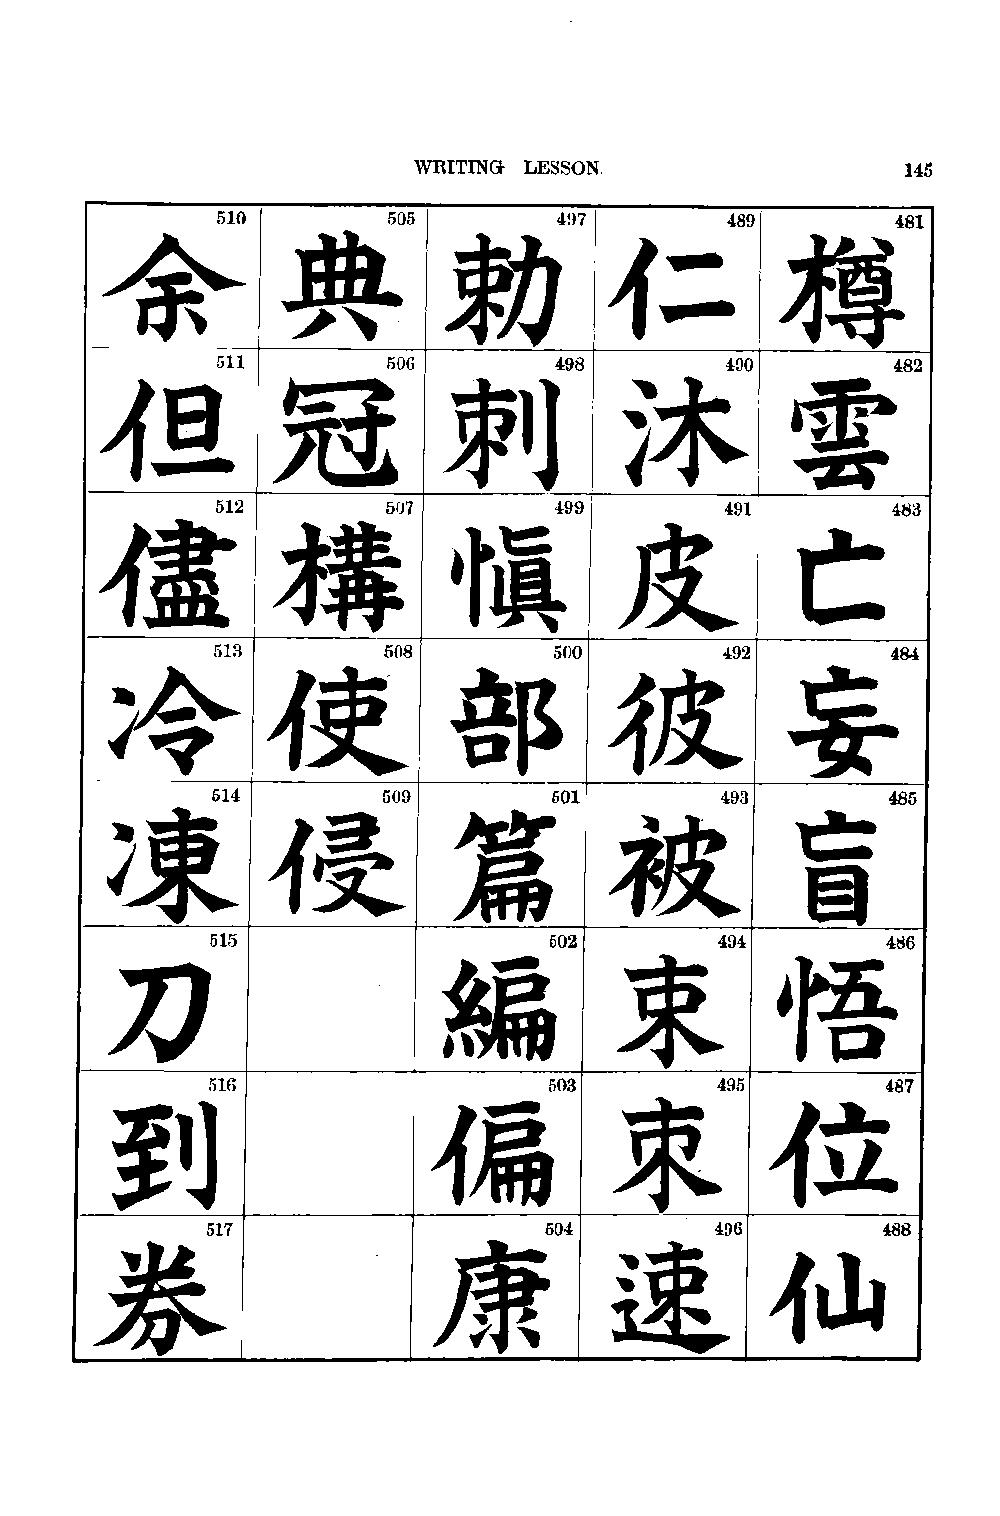 WRITING LESSON 145
481 樽
482 雲
483 亡
484 妄
485 盲
486 悟
487 位
488 仙
489 仁
490 沐
491 皮
492 彼
493 被
494 束
495 朿
496 速
497 勅
498 刺
499 愼
500 部
501 篇
502 編
503 偏
504 康
505 典
506 冠
507 構
508 使
509 侵
510 余
511 但
512 儘
513 冷
514 凍
515 刀
516 到
517 券